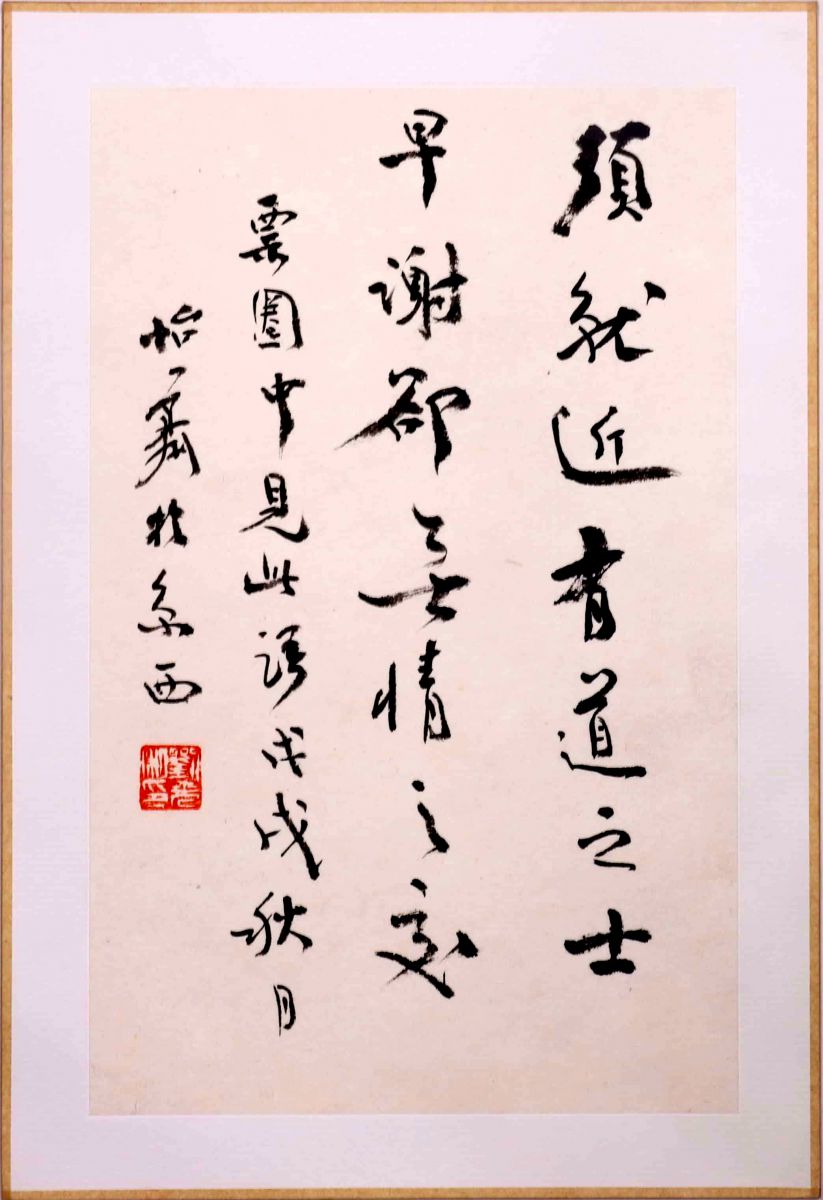 須就近有道之士
早謝卻無情之交
票圈中見此語戊戌秋月
怡齋於京西